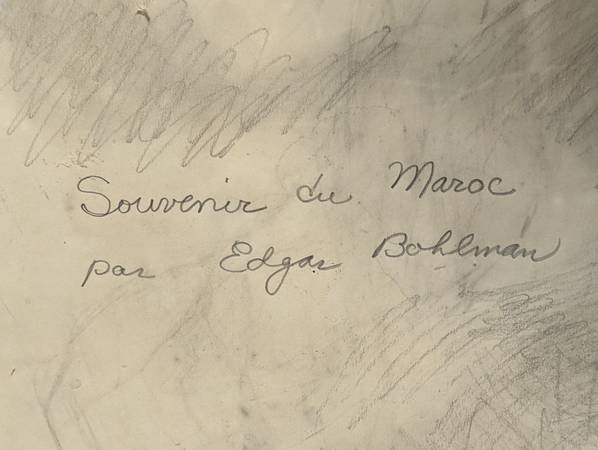 Souvenir du Maroc
par Edgar Bohlman